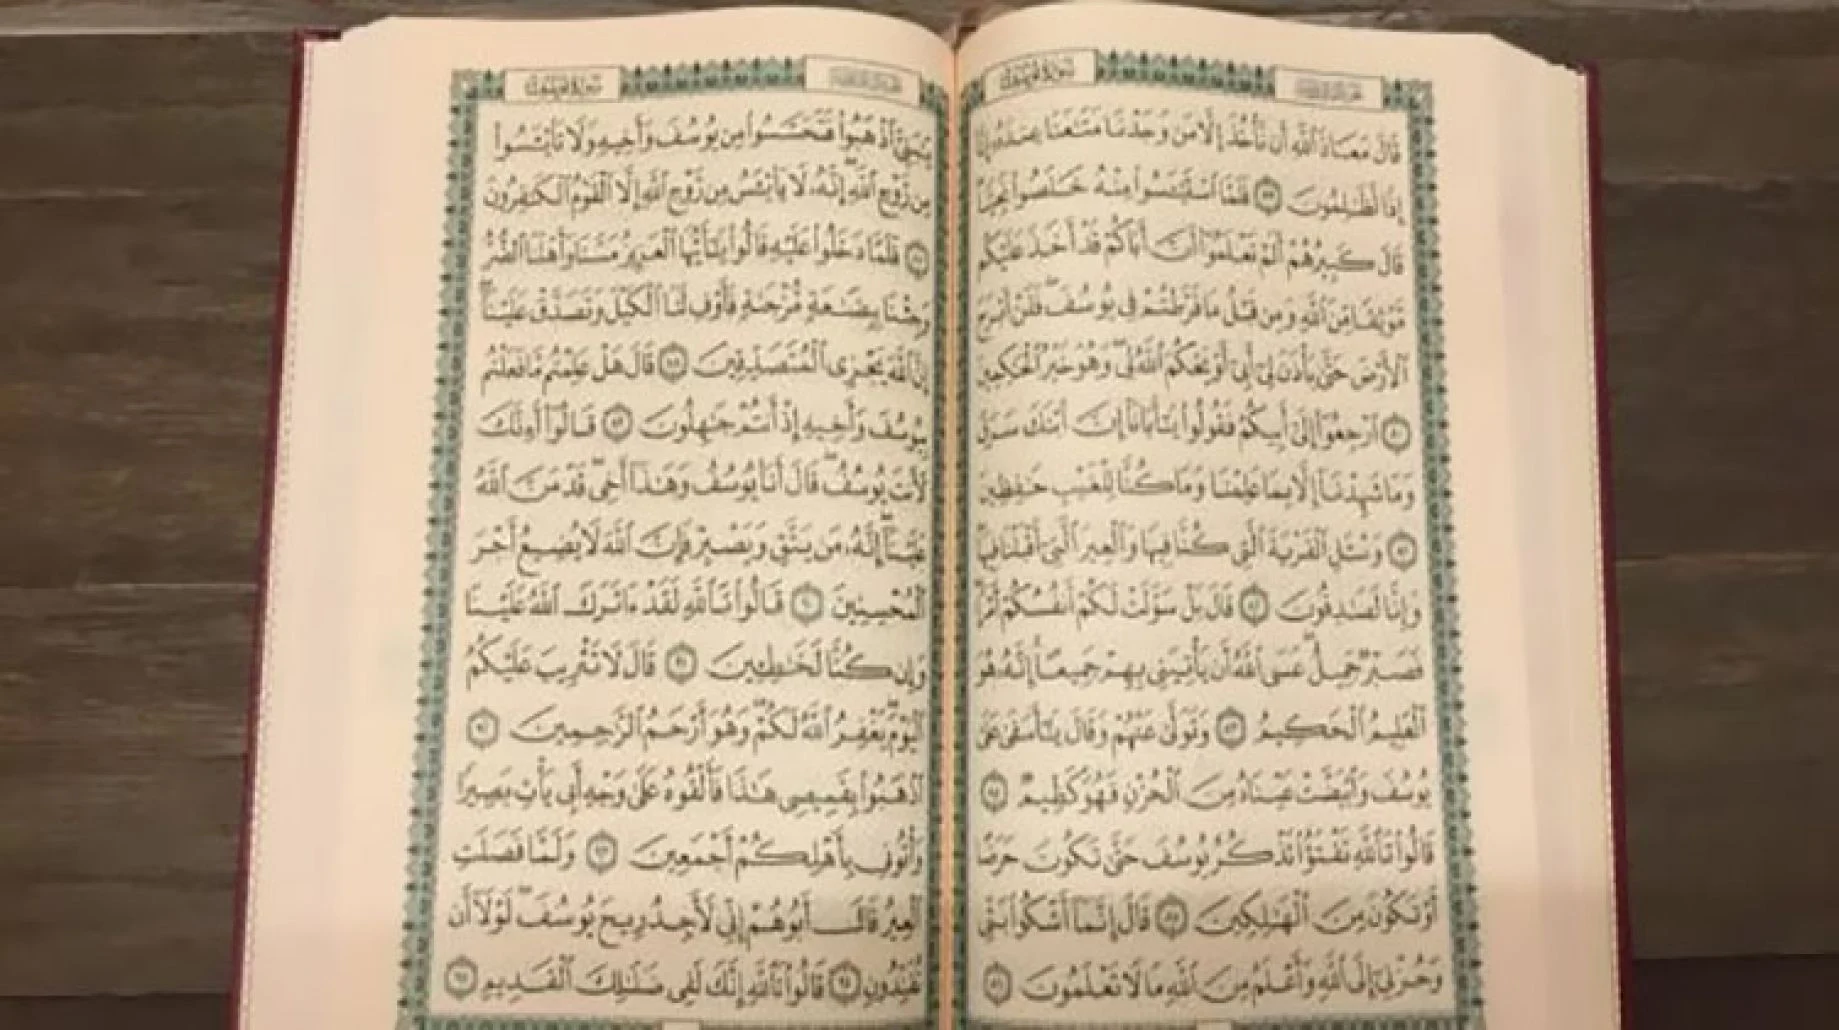 سورة يوسف
الجزء الثالث عشر
قَالَ مَعَاذَ ٱللَّهِ أَن نَّأۡخُذَ إِلَّا مَن وَجَدۡنَا مَتَٰعَنَا عِندَهُۥٓ إِنَّآ
إِذٗا لَّظَٰلِمُونَ ٧٩ فَلَمَّا ٱسۡتَيۡـَٔسُواْ مِنۡهُ خَلَصُواْ نَجِيّٗاۖ
قَالَ كَبِيرُهُمۡ أَلَمۡ تَعۡلَمُوٓاْ أَنَّ أَبَاكُمۡ قَدۡ أَخَذَ عَلَيۡكُم
مَّوۡثِقٗا مِّنَ ٱللَّهِ وَمِن قَبۡلُ مَا فَرَّطتُمۡ فِي يُوسُفَۖ فَلَنۡ أَبۡرَحَ
ٱلۡأَرۡضَ حَتَّىٰ يَأۡذَنَ لِيٓ أَبِيٓ أَوۡ يَحۡكُمَ ٱللَّهُ لِيۖ وَهُوَ خَيۡرُ ٱلۡحَٰكِمِينَ
٨٠ ٱرۡجِعُوٓاْ إِلَىٰٓ أَبِيكُمۡ فَقُولُواْ يَٰٓأَبَانَآ إِنَّ ٱبۡنَكَ سَرَقَ
وَمَا شَهِدۡنَآ إِلَّا بِمَا عَلِمۡنَا وَمَا كُنَّا لِلۡغَيۡبِ حَٰفِظِينَ
٨١ وَسۡـَٔلِ ٱلۡقَرۡيَةَ ٱلَّتِي كُنَّا فِيهَا وَٱلۡعِيرَ ٱلَّتِيٓ أَقۡبَلۡنَا فِيهَاۖ
وَإِنَّا لَصَٰدِقُونَ ٨٢ قَالَ بَلۡ سَوَّلَتۡ لَكُمۡ أَنفُسُكُمۡ أَمۡرٗاۖ
فَصَبۡرٞ جَمِيلٌۖ عَسَى ٱللَّهُ أَن يَأۡتِيَنِي بِهِمۡ جَمِيعًاۚ إِنَّهُۥ هُوَ
ٱلۡعَلِيمُ ٱلۡحَكِيمُ ٨٣ وَتَوَلَّىٰ عَنۡهُمۡ وَقَالَ يَٰٓأَسَفَىٰ عَلَىٰ
يُوسُفَ وَٱبۡيَضَّتۡ عَيۡنَاهُ مِنَ ٱلۡحُزۡنِ فَهُوَ كَظِيمٞ ٨٤
قَالُواْ تَٱللَّهِ تَفۡتَؤُاْ تَذۡكُرُ يُوسُفَ حَتَّىٰ تَكُونَ حَرَضًا
أَوۡ تَكُونَ مِنَ ٱلۡهَٰلِكِينَ ٨٥ قَالَ إِنَّمَآ أَشۡكُواْ بَثِّي
وَحُزۡنِيٓ إِلَى ٱللَّهِ وَأَعۡلَمُ مِنَ ٱللَّهِ مَا لَا تَعۡلَمُونَ ٨٦
سورة يوسف
يَٰبَنِيَّ ٱذۡهَبُواْ فَتَحَسَّسُواْ مِن يُوسُفَ وَأَخِيهِ وَلَا تَاْيۡـَٔسُواْ
مِن رَّوۡحِ ٱللَّهِۖ إِنَّهُۥ لَا يَاْيۡـَٔسُ مِن رَّوۡحِ ٱللَّهِ إِلَّا ٱلۡقَوۡمُ ٱلۡكَٰفِرُونَ
٨٧ فَلَمَّا دَخَلُواْ عَلَيۡهِ قَالُواْ يَٰٓأَيُّهَا ٱلۡعَزِيزُ مَسَّنَا وَأَهۡلَنَا ٱلضُّرُّ
وَجِئۡنَا بِبِضَٰعَةٖ مُّزۡجَىٰةٖ فَأَوۡفِ لَنَا ٱلۡكَيۡلَ وَتَصَدَّقۡ عَلَيۡنَآۖ
إِنَّ ٱللَّهَ يَجۡزِي ٱلۡمُتَصَدِّقِينَ ٨٨ قَالَ هَلۡ عَلِمۡتُم مَّا فَعَلۡتُم
بِيُوسُفَ وَأَخِيهِ إِذۡ أَنتُمۡ جَٰهِلُونَ ٨٩ قَالُوٓاْ أَءِنَّكَ
لَأَنتَ يُوسُفُۖ قَالَ أَنَا۠ يُوسُفُ وَهَٰذَآ أَخِيۖ قَدۡ مَنَّ ٱللَّهُ
عَلَيۡنَآۖ إِنَّهُۥ مَن يَتَّقِ وَيَصۡبِرۡ فَإِنَّ ٱللَّهَ لَا يُضِيعُ أَجۡرَ
ٱلۡمُحۡسِنِينَ ٩٠ قَالُواْ تَٱللَّهِ لَقَدۡ ءَاثَرَكَ ٱللَّهُ عَلَيۡنَا
وَإِن كُنَّا لَخَٰطِـِٔينَ ٩١ قَالَ لَا تَثۡرِيبَ عَلَيۡكُمُ
ٱلۡيَوۡمَۖ يَغۡفِرُ ٱللَّهُ لَكُمۡۖ وَهُوَ أَرۡحَمُ ٱلرَّٰحِمِينَ ٩٢
ٱذۡهَبُواْ بِقَمِيصِي هَٰذَا فَأَلۡقُوهُ عَلَىٰ وَجۡهِ أَبِي يَأۡتِ بَصِيرٗا
وَأۡتُونِي بِأَهۡلِكُمۡ أَجۡمَعِينَ ٩٣ وَلَمَّا فَصَلَتِ
ٱلۡعِيرُ قَالَ أَبُوهُمۡ إِنِّي لَأَجِدُ رِيحَ يُوسُفَۖ لَوۡلَآ أَن
تُفَنِّدُونِ ٩٤ قَالُواْ تَٱللَّهِ إِنَّكَ لَفِي ضَلَٰلِكَ ٱلۡقَدِيمِ ٩٥